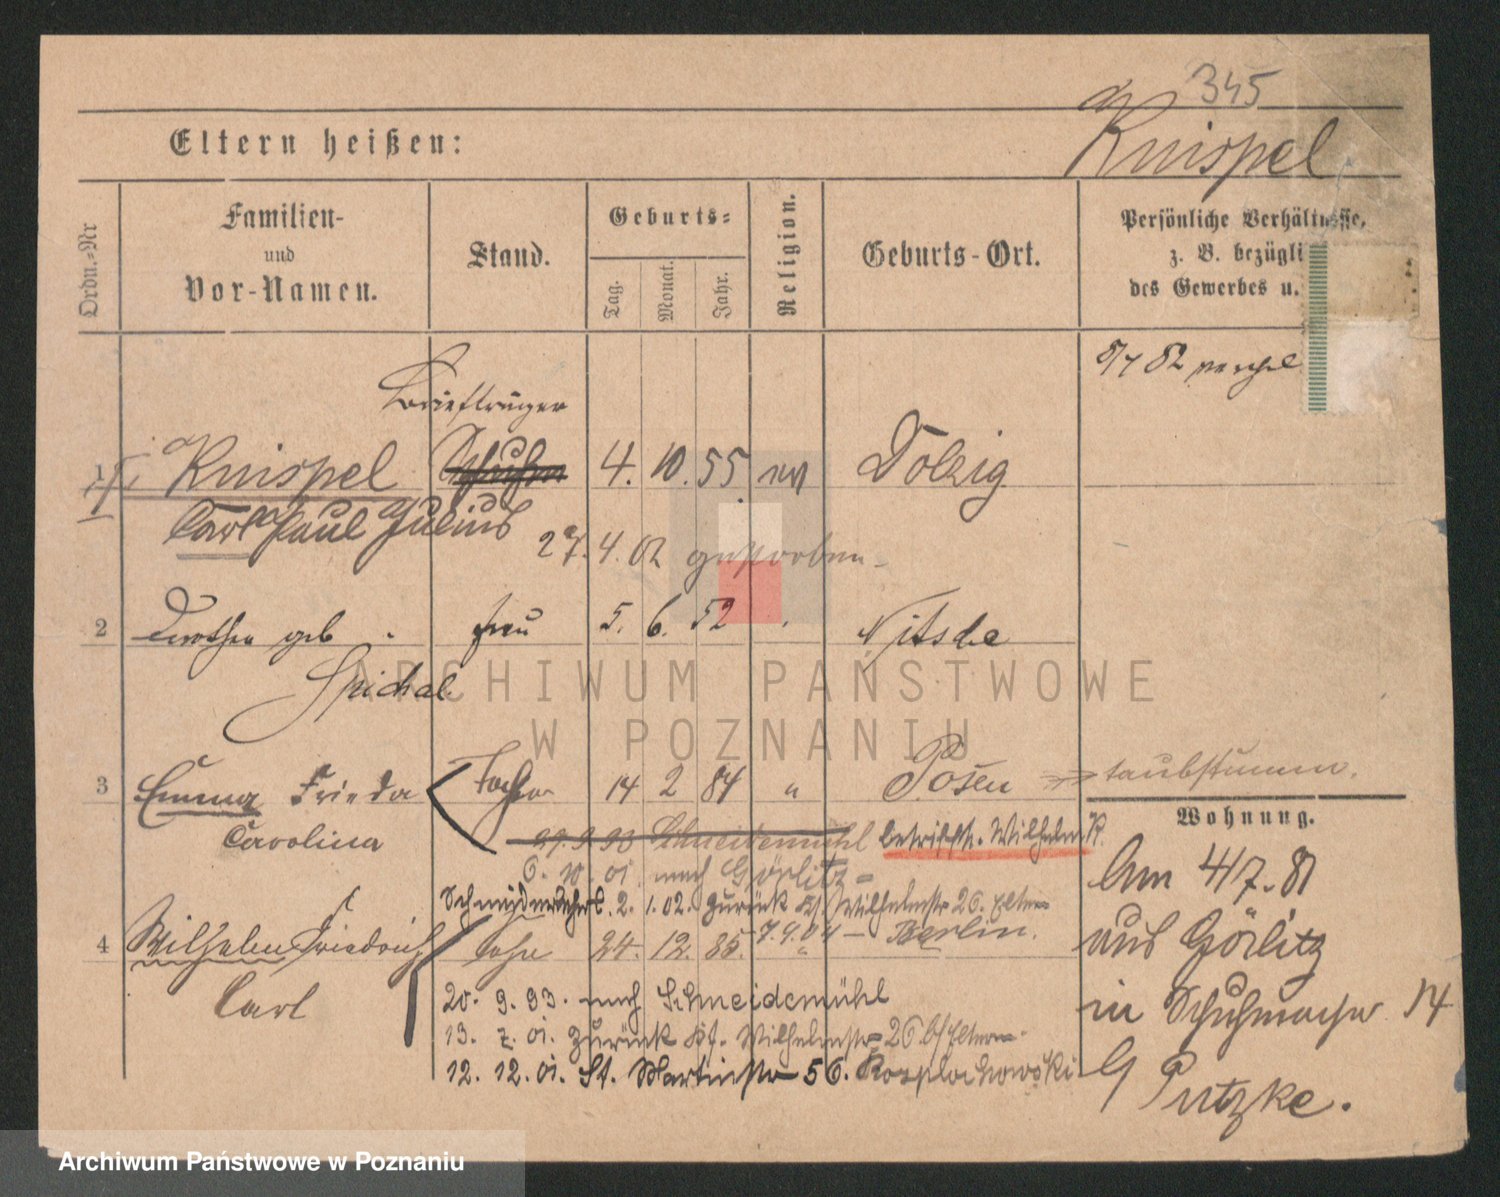 345
Eltern heißen:
Knispel
Ordn.-Nr
Familien-
und
Vor-Namen.
Stand.
Geburts-
Tag.
Monat.
Jahr.
Religion.
Geburts-Ort.
Persönliche Verhältnisse,
z. B. bezügli
des Gewerbes u.
Briefträger
1 Knispel 4. 10. 55 Dolzig
Carl Paul Julius
27. 4. 02 gestorben
2 Dorothea geb Frau 5. 6. 52 Nitsche
Spichal
3 Emma Frieda Tochter 14 2 84 " Posen taubstumm.
Carolina
Wohnung.
Schneidemühl betrifft. Wilhelm K.
6. 10. 01. nach Görlitz
2. 1. 02. zurück Wilhelmstr 26. Eltern
7. 9. 04 - Berlin.
4 Wilhelm Friedrich Sohn 24. 12. 85. "
Carl
20. 9. 93. nach Schneidemühl
13. 7. 01. zurück Wilhelmstr 26 b/Eltern
12. 12. 01. St. Martinstr 56.
Am 4/7. 81
aus Görlitz
in Schuhmacher 14
b Putzke.
ARCHIWUM PAŃSTWOWE
W POZNANIU
Archiwum Państwowe w Poznaniu